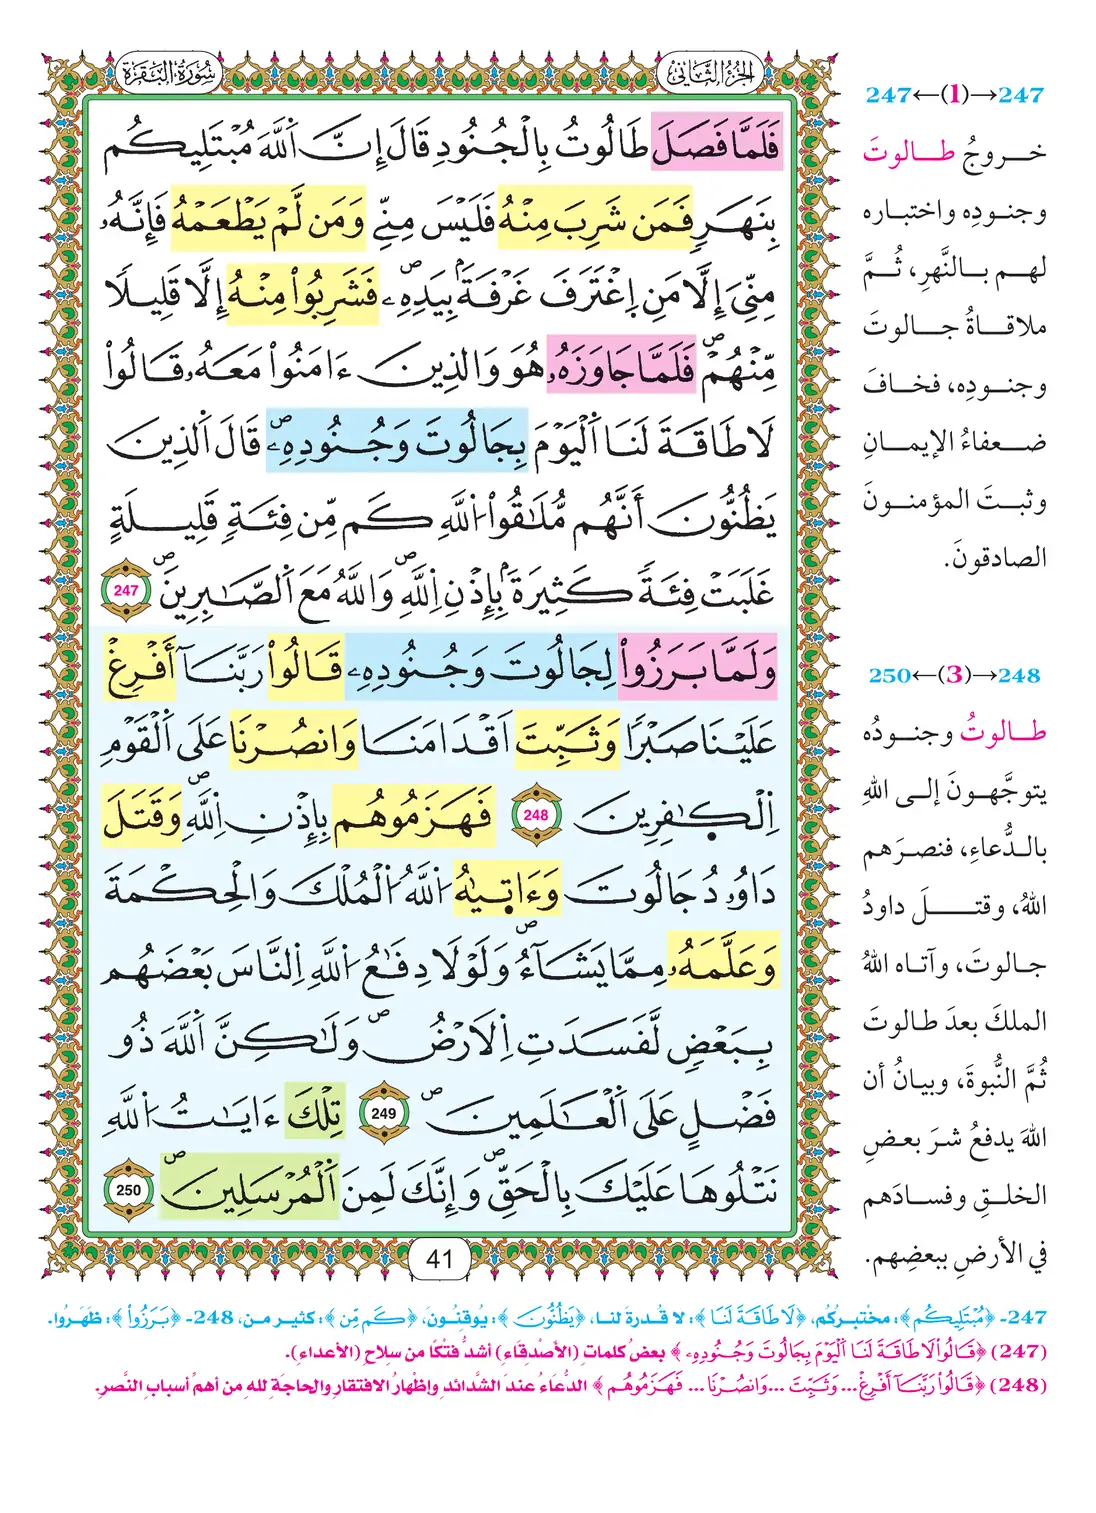 الجزء الثاني
سورة البقرة
فَلَمَّا فَصَلَ طَالُوتُ بِالْجُنُودِ قَالَ إِنَّ اَ۬للَّهَ مُبْتَلِيكُم
بِنَهَرٍ فَمَن شَرِبَ مِنْهُ فَلَيْسَ مِنِّے وَمَن لَّمْ يَطْعَمْهُ فَإِنَّهُۥ
مِنِّيَ إِلَّا مَنِ اِ۪غْتَرَفَ غَرْفَةَۢ بِيَدِهِۦۖ فَشَرِبُواْ مِنْهُ إِلَّا قَلِيلًا
مِّنْهُمْۖ فَلَمَّا جَاوَزَهُۥ هُوَ وَالذِينَ ءَامَنُواْ مَعَهُۥ قَالُواْ
لَا طَاقَةَ لَنَا اَ۬لْيَوْمَ بِجَالُوتَ وَجُنُودِهِۦۖ قَالَ اَ۬لذِينَ
يَظُنُّونَ أَنَّهُم مُّلَٰقُواْ اُ۬للَّهِ كَم مِّن فِئَةٍ قَلِيلَةٍ
غَلَبَتْ فِئَةٗ كَثِيرَةَۢ بِإِذْنِ اِ۬للَّهِۖ وَاللَّهُ مَعَ اَ۬لصَّٰبِرِينَۖ 247
وَلَمَّا بَرَزُواْ لِجَالُوتَ وَجُنُودِهِۦ قَالُواْ رَبَّنَآ أَفْرِغْ
عَلَيْنَا صَبْرٗا وَثَبِّتَ اَقْدَامَنَا وَانصُرْنَا عَلَى اَ۬لْقَوْمِ
اِ۬لْكٰ۪فِرِينَ 248 فَهَزَمُوهُم بِإِذْنِ اِ۬للَّهِۖ وَقَتَلَ
دَاوُۥدُ جَالُوتَ وَءَات۪يٰهُ اُ۬للَّهُ اُ۬لْمُلْكَ وَالْحِكْمَةَ
وَعَلَّمَهُۥ مِمَّا يَشَآءُۖ وَلَوْلَا دِفَٰعُ اُ۬للَّهِ اِ۬لنَّاسَ بَعْضَهُم
بِبَعْضٖ لَّفَسَدَتِ اِ۬لَارْضُۖ وَلَٰكِنَّ اَ۬للَّهَ ذُو
فَضْلٍ عَلَى اَ۬لْعَٰلَمِينَۖ 249 تِلْكَ ءَايَٰتُ اُ۬للَّهِ
نَتْلُوهَا عَلَيْكَ بِالْحَقِّۖ وَإِنَّكَ لَمِنَ اَ۬لْمُرْسَلِينَۖ 250
41
247←(1)→247
خروجُ طالوتَ
وجنودِه واختباره
لهم بالنَّهرِ، ثُمَّ
ملاقاةُ جالوتَ
وجنودِه، فخافَ
ضعفاءُ الإيمانِ
وثبتَ المؤمنونَ
الصادقونَ.
250←(3)→248
طالوتُ وجنودُه
يتوجَّهونَ إلى اللهِ
بالدُّعاءِ، فنصرَهم
اللهُ، وقتلَ داودُ
جالوتَ، وآتاه اللهُ
الملكَ بعدَ طالوتَ
ثُمَّ النُّبوةَ، وبيانُ أن
اللهَ يدفعُ شرَ بعضِ
الخلقِ وفسادَهم
في الأرضِ ببعضِهم.
247- ﴿مُبْتَلِيكُم﴾: مختبرُكُم، ﴿لَا طَاقَةَ لَنَا﴾: لا قُدرةَ لنا، ﴿يَظُنُّونَ﴾: يُوقِنُونَ، ﴿كَم مِّن﴾: كثير من، 248- ﴿بَرَزُواْ﴾: ظَهَرُوا.
(247) ﴿قَالُواْ لَا طَاقَةَ لَنَا اَ۬لْيَوْمَ بِجَالُوتَ وَجُنُودِهِۦ﴾ بعضُ كلماتِ (الأصدقاءِ) أشدُّ فتكًا من سلاحِ (الأعداءِ).
(248) ﴿قَالُواْ رَبَّنَآ أَفْرِغْ... وَثَبِّتَ ...وَانصُرْنَا... فَهَزَمُوهُم﴾ الدُّعاءُ عندَ الشَّدائدِ وإظهارُ الافتقارِ والحاجةِ للهِ من أهمِّ أسبابِ النَّصرِ.